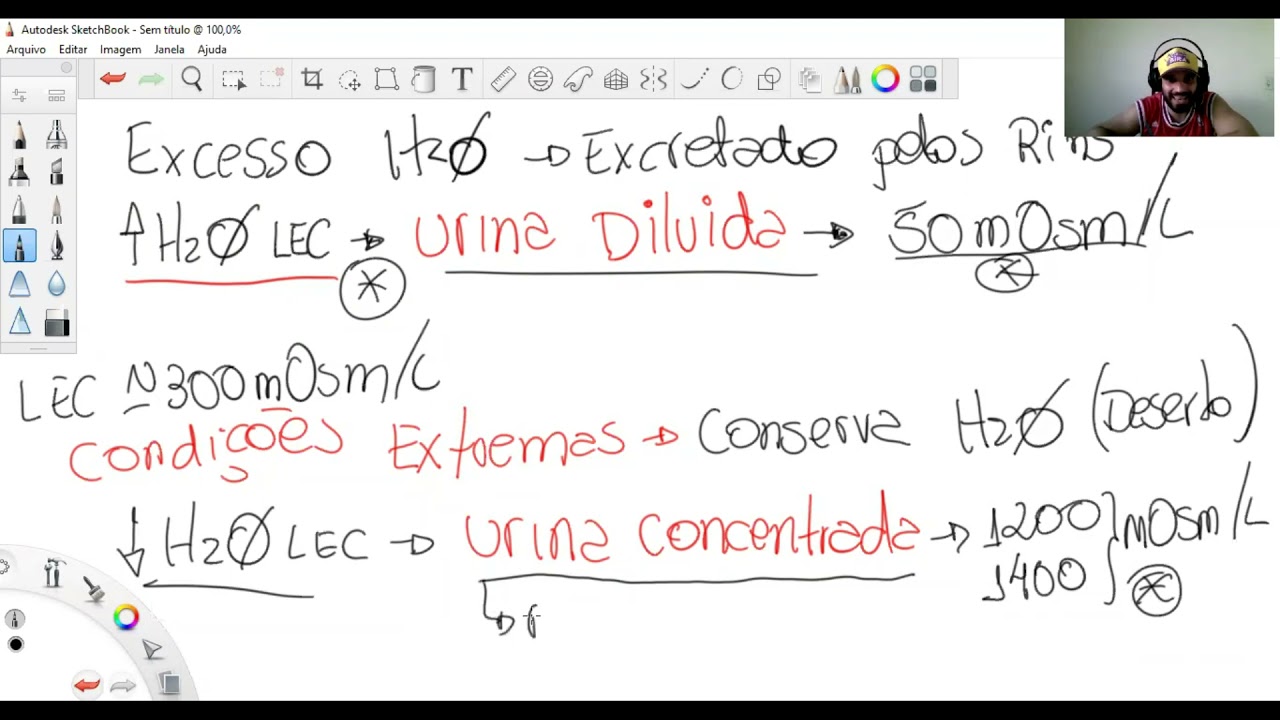 Autodesk SketchBook - Sem título @ 100,0%
Arquivo Editar Imagem Janela Ajuda
Excesso H2O → Excretado pelos Rins
↑H2O LEC → Urina Diluida → 50 mOsm/L
LEC ≃ 300mOsm/L
Condições Extremas → Conserva H2O (Deserto)
↓ H2O LEC → Urina Concentrada → 1200 } mOsm/L
1400